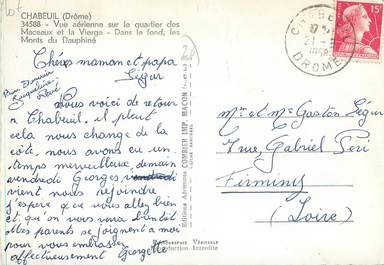 CHABEUIL (Drôme)
34588 - Vue aérienne sur le quartier des
Maceaux et la Vierge - Dans le fond, les
Monts du Dauphiné
Chers maman et papa
Ségur
Nous voici de retour
à Chabeuil, il pleut
cela nous change de la
côte, nous avons eu un
temps merveilleux, demain
vendredi Georges
vient nous rejoindre
j'espère que vous allez bien
et qu'on vous verra bientôt
Mes parents se joignent à moi
pour vous embrasser
affectueusement Georgette
Editions Aériennes COMBIER IMP. MACON
Photographie Véritable
Reproduction Interdite
CHABEUIL
DROME
15F
Mr et Mme Gaston Ségur
Rue Gabriel Péri
Firminy
(Loire)